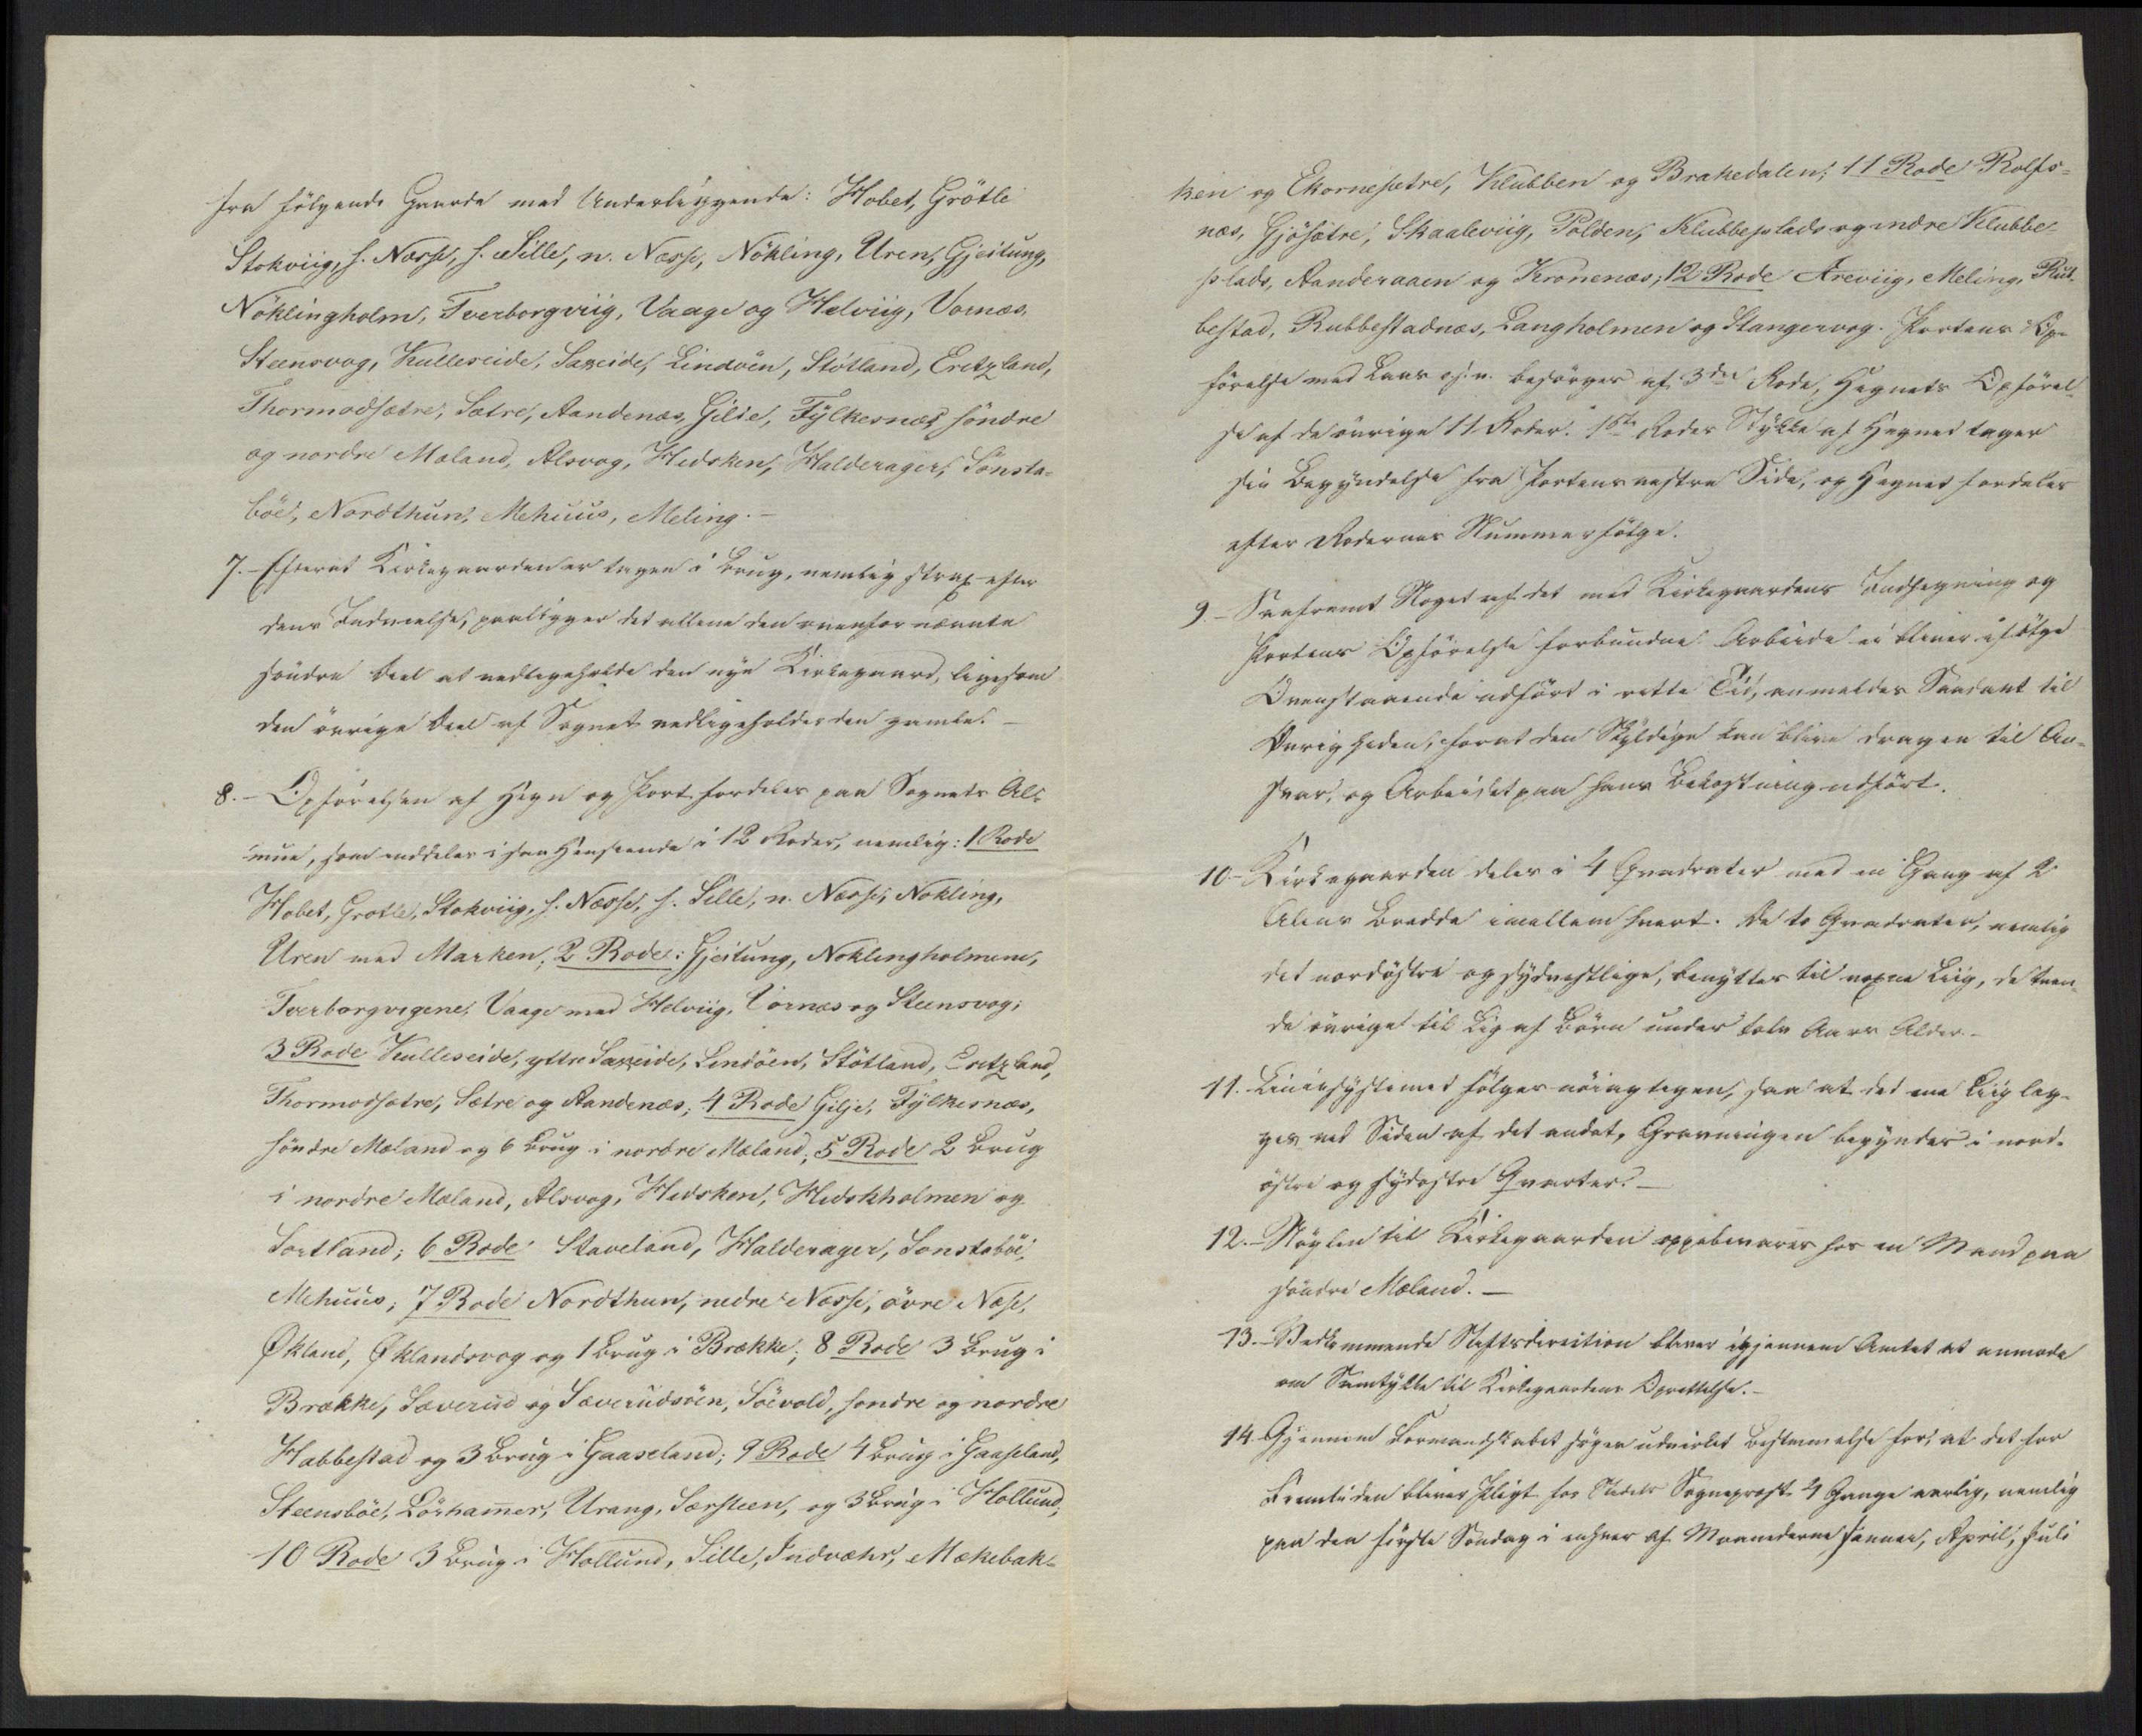 fra følgende Gaarde med Underliggende: Hobet, Grötle
Stokviig, s. Næsse, s. Sille, n. Næsse, Nökling, Uren, Gjeitung,
Nöklingholm, Tverborgviig, Vaage og Helviig, Vornæs,
Steensvog, Kulleseide, Saxeide, Lindöen, Stötland, Eretzland,
Thormodsætre, Sætre, Aandenæs, Gilje, Fylkesnæs, söndre
og nordre Mæland, Alsvog, Hidsken, Halderager, Sönsta-
böe, Nordthun, Mehuus, Meling.-
7.- Efterat Kirkegaarden er tagen i Brug, nemlig strax efter
dens Indvielse, paaligger det allene den ovenfor nævnte
söndre Deel at vedligeholde den nye Kirkegaard, ligesom
den övrige Deel af Sognet vedligeholder den gamle.-
8.- Opförelsen af Hegn og Port fordeles paa Sognets Al-
mue, som inddeles i saa Henseende i 12 Roder, nemlig: 1 Rode
Hobet, Grotle, Stokviig, s. Næsse, s. Sille, n. Næsse, Nokling,
Uren med Marken; 2 Rode: Gjeitung, Noklingholmene,
Tverborgvigene, Vaage med Helviig, Vornæs og Steensvog;
3 Rode Kulleseide, yttre Saxeide, Lindöen, Stötland, Eretzland,
Thormodsætre, Sætre og Aandenæs; 4 Rode Gilje, Fylkesnæs,
söndre Mæland og 6 Brug i nordre Mæland; 5 Rode 2 Brug
i nordre Mæland, Alsvog, Hidsken, Hidskholmen og
Sortland; 6 Rode Staveland, Halderager, Sonstaböe,
Mehuus; 7 Rode Nordthun, nedre Næsse, övre Næse,
Økland, Øklandsvog og 1 Brug i Brække; 8 Rode 3 Brug i
Brække, Sæverud og Sæverudsöen, Söevold, sondre og nordre
Habbestad og 3 Brug i Gaaseland; 9 Rode 4 Brug i Gaaseland,
Steensböe, Börhamer, Urang, Særsteen, og 3 Brug i Hollund;
10 Rode 3 Brug i Hollund, Sille, Indvæhr, Mækebak-
ken og Ekornesætre, Klubben og Brakedalen; 11 Rode Rolfs-
næs, Gjösætre, Skaaleviig, Polden, Klubbeplads og indre Klubbe-
plads, Aanderaaen og Kronenæs; 12 Rode Areviig, Meling, Rub-
bestad, Rubbestadnæs, Langholmen og Stangervog. Portens Op-
förelse med Laas o.s.v. besörges af 3die Rode, Hegnets Opförel-
se af de övrige 11 Roder. 1ste Rodes Stykke af Hegnet tager
sin Begyndelse fra Portens vestre Side, og Hegnet fordeles
efter Rodernes Nummerfölge.
9.- Saafremt Noget af det med Kirkegaardens Indhegning og
Portens Opförelse forbundne Arbeide ei bliver ifölge
Ovenstaaende udfört i rette Tid, anmeldes Saadant til
Övrigheden, forat den Skyldige kan blive dragen til An-
svar, og Arbeidet paa hans Bekostning udfört.
10.- Kirkegaarden deles i 4 Qvadrater med en Gang af 2
Alens Bredde imellem hvert. De to Qvadrater, nemlig
det nordöstre og sydvestlige, benyttes til voxne Liig, de tven-
de övrige til Lig af Börn under tolv Aars Alder.-
11. Liniesystemet fölges nöiagtigen, saa at det ene Liig læg-
ges ved Siden af det andet, Gravningen begyndes i nord-
östre og sydostre Qvarter.-
12.- Nöglen til Kirkegaarden oppebevares hos en Mand paa
söndre Mæland.-
13.- Vedkommende Stiftsdirection bliver igjennem Amtet at anmode
om Samtykke til Kirkegaardens Oprettelse.-
14. Gjennem Formandskabet söges udvirket Bestemmelse for, at det for
Fremtiden bliver Pligt for Stedets Sognepræst 4 Gange aarlig, nemlig
paa den förste Söndag i enhver af Maanederne Januar, April, Juli